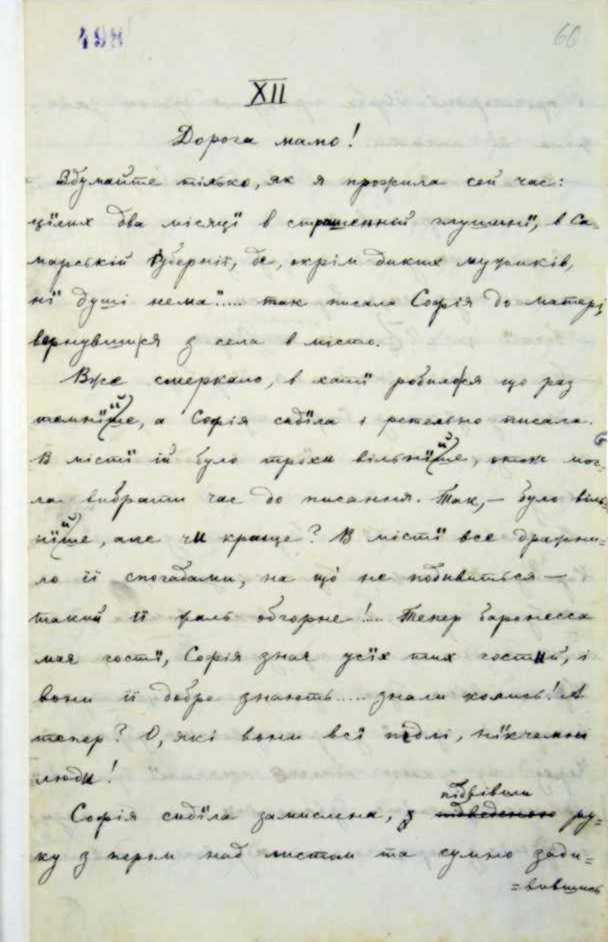 498
66
XII
Дорога мамо!
Здумайте тілько, як я прожила сей час:
цїлих два місяцї в страшенній глушинї, в Са-
марській губернії, де, окрім диких мужиків,
нї душі нема"..... так писала Софія до матері,
вернувшися з села в місто.
Вже смеркало, в хатї робилося що раз
темнїйше, а Софія сидїла і ретельно писала.
В містї їй було трохи вільнїйше, отож мог-
ла вибрати час до писання. Так, – було віль-
нїйше, але чи краще? В містї все дражни-
ло її спогадами, на що не подивиться –
такий її жаль обгорне!... Тепер баронесса
мая гостї, Софія зная усїх тих гостий, і
вони її добре знають..... знали колись! А
тепер? О, які вони всї підлі, нїкчемні
люди!
підвівши
Софія сидїла замислена, з підведеною ру=
ку з пером над листом та сумно зади=
=вившись